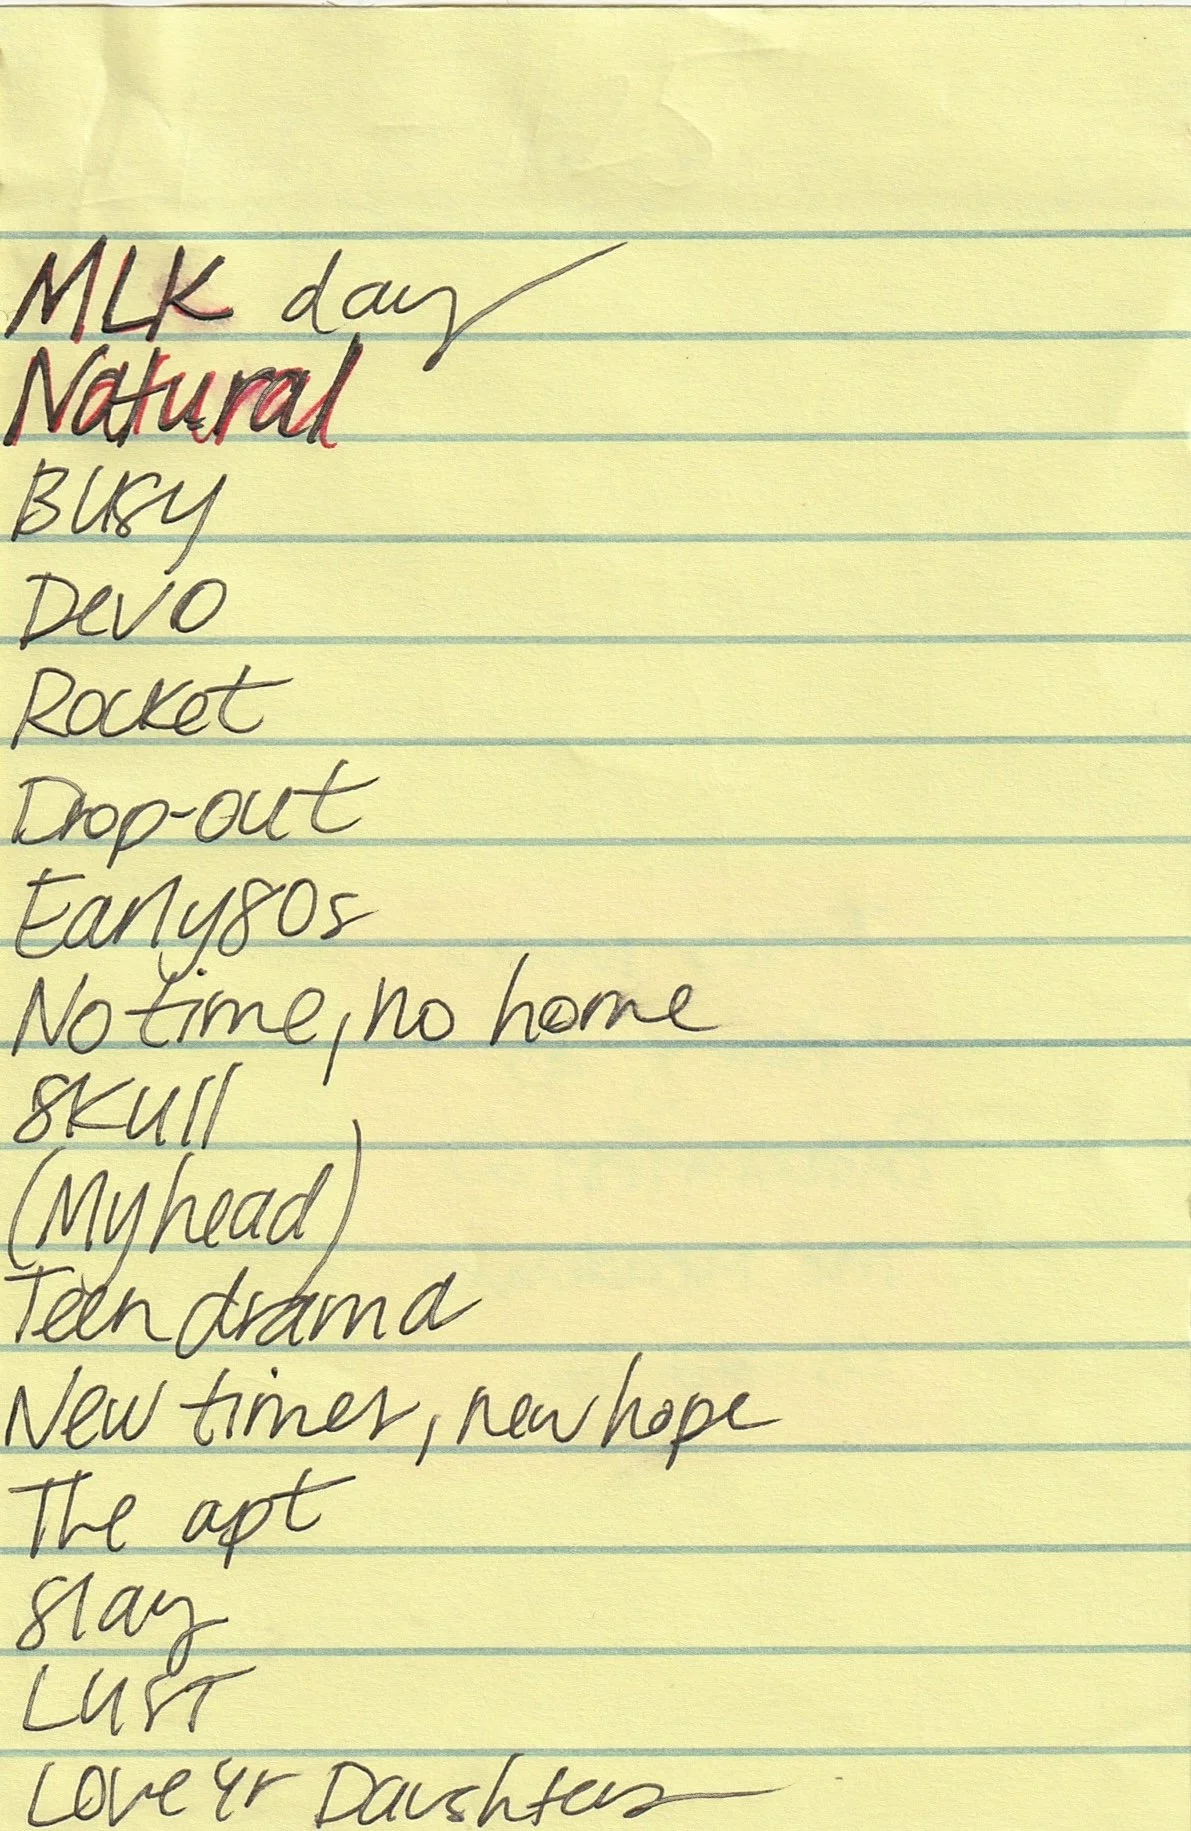 MLK day
Natural
Busy
Devo
Rocket
Drop-out
Early 80s
No time, no home
Skull
(My head)
Teen drama
New times, new hope
The apt
Slay
LUST
Love yr Daughters